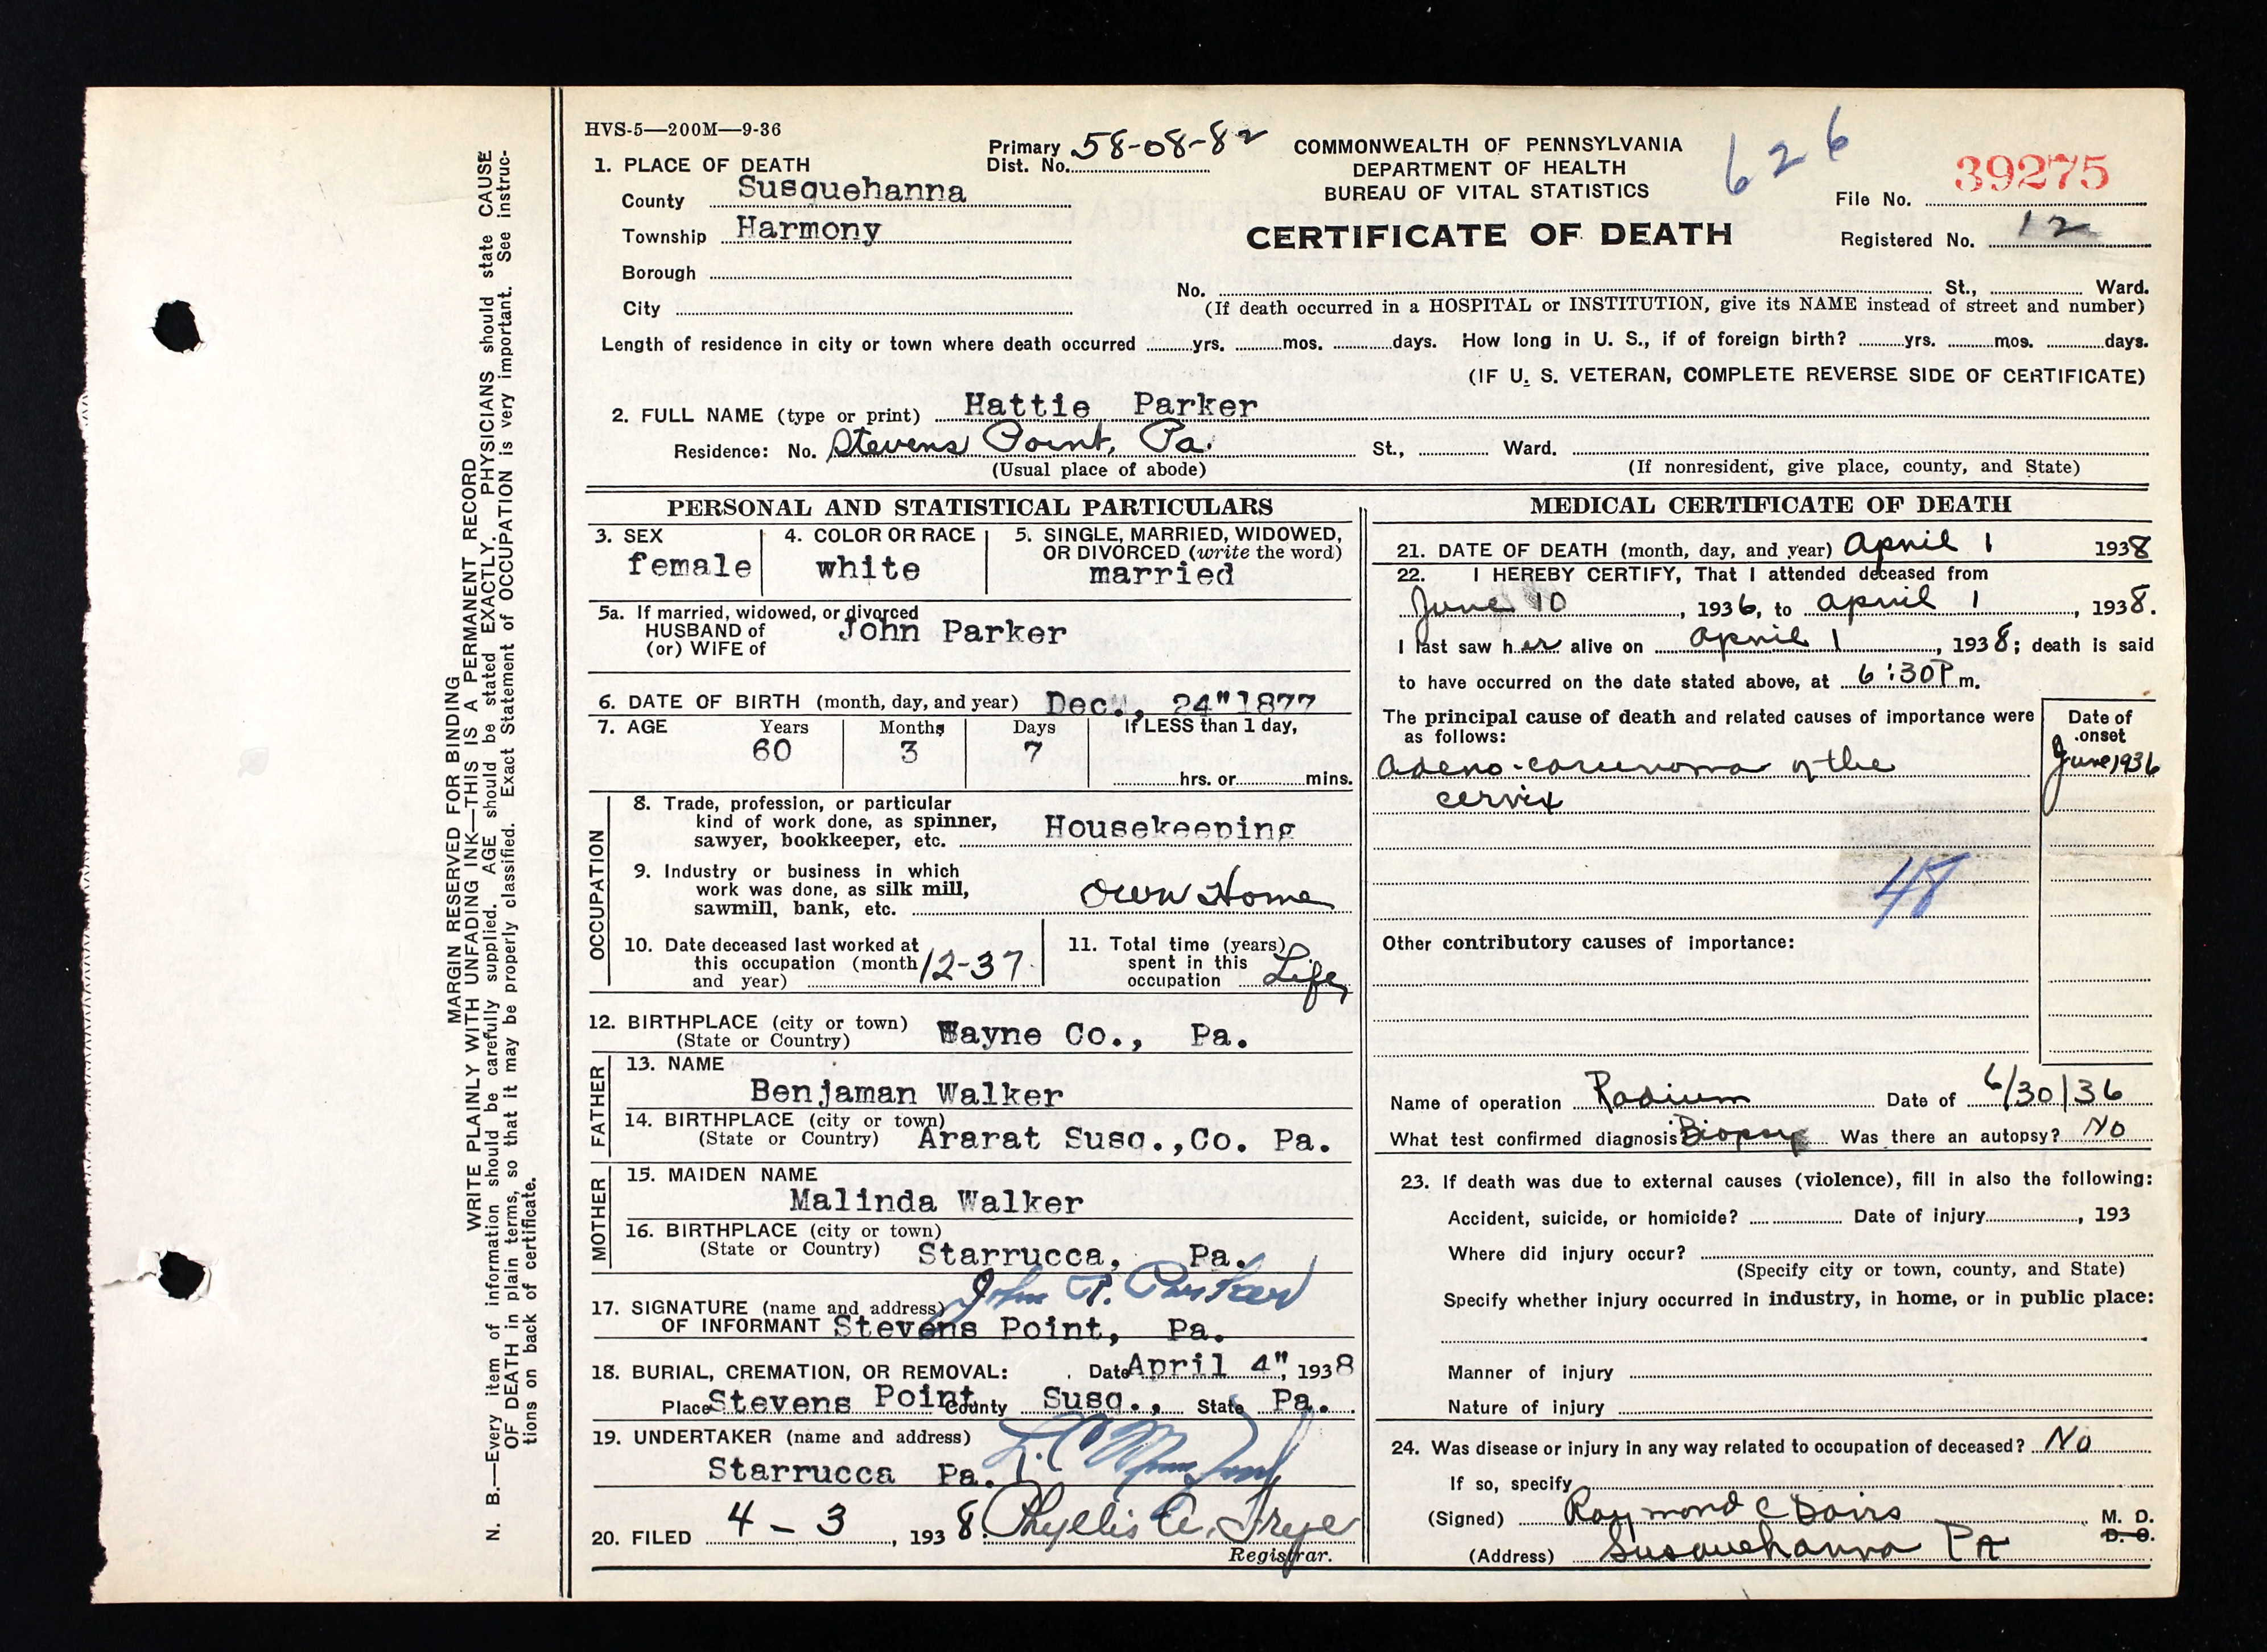 HVS-5—200M—9-36
Primary Dist. No. 58-08-82
COMMONWEALTH OF PENNSYLVANIA
DEPARTMENT OF HEALTH
BUREAU OF VITAL STATISTICS
CERTIFICATE OF DEATH
626
File No. 39275
Registered No. 12
1. PLACE OF DEATH
County Susquehanna
Township Harmony
Borough
City
No. St., Ward.
(If death occurred in a HOSPITAL or INSTITUTION, give its NAME instead of street and number)
Length of residence in city or town where death occurred yrs. mos. days. How long in U. S., if of foreign birth? yrs. mos. days.
(IF U. S. VETERAN, COMPLETE REVERSE SIDE OF CERTIFICATE)
2. FULL NAME (type or print) Hattie Parker
Residence: No. Stevens Point, Pa. St., Ward.
(Usual place of abode) (If nonresident, give place, county, and State)
PERSONAL AND STATISTICAL PARTICULARS
3. SEX
female
4. COLOR OR RACE
white
5. SINGLE, MARRIED, WIDOWED,
OR DIVORCED (write the word)
married
5a. If married, widowed, or divorced
HUSBAND of
(or) WIFE of
John Parker
6. DATE OF BIRTH (month, day, and year) Dec., 24" 1877
7. AGE Years Months Days If LESS than 1 day,
60 3 7
hrs. or mins.
OCCUPATION
8. Trade, profession, or particular
kind of work done, as spinner,
sawyer, bookkeeper, etc. Housekeeping
9. Industry or business in which
work was done, as silk mill,
sawmill, bank, etc. Own Home
10. Date deceased last worked at
this occupation (month
and year) 12-37
11. Total time (years)
spent in this
occupation Life
12. BIRTHPLACE (city or town)
(State or Country) Wayne Co., Pa.
FATHER
13. NAME
Benjaman Walker
14. BIRTHPLACE (city or town)
(State or Country) Ararat Susq.,Co. Pa.
MOTHER
15. MAIDEN NAME
Malinda Walker
16. BIRTHPLACE (city or town)
(State or Country) Starrucca, Pa.
John Parker
17. SIGNATURE (name and address)
OF INFORMANT Stevens Point, Pa.
18. BURIAL, CREMATION, OR REMOVAL: Date April 4", 1938
Place Stevens Point County Susq., State Pa.
19. UNDERTAKER (name and address)
Starrucca Pa.
20. FILED 4-3, 1938. Phyllis A. Frye
Registrar.
MEDICAL CERTIFICATE OF DEATH
21. DATE OF DEATH (month, day, and year) April 1 1938
22. I HEREBY CERTIFY, That I attended deceased from
June 10, 1936, to April 1, 1938.
I last saw her alive on April 1, 1938; death is said
to have occurred on the date stated above, at 6:30 P m.
The principal cause of death and related causes of importance were
as follows:
Date of onset
Adeno-carcinoma of the June 1936
cervix
48
Other contributory causes of importance:
Name of operation Radium Date of 6/30/36
What test confirmed diagnosis? Biopsy Was there an autopsy? No
23. If death was due to external causes (violence), fill in also the following:
Accident, suicide, or homicide? Date of injury, 193
Where did injury occur?
(Specify city or town, county, and State)
Specify whether injury occurred in industry, in home, or in public place:
Manner of injury
Nature of injury
24. Was disease or injury in any way related to occupation of deceased? No
If so, specify
(Signed) Raymond C Davis, M. D.
D. O.
(Address) Susquehanna PA
MARGIN RESERVED FOR BINDING
WRITE PLAINLY WITH UNFADING INK—THIS IS A PERMANENT RECORD
N. B.—Every item of information should be carefully supplied. AGE should be stated EXACTLY. PHYSICIANS should state CAUSE
OF DEATH in plain terms, so that it may be properly classified. Exact Statement of OCCUPATION is very important. See instruc-
tions on back of certificate.